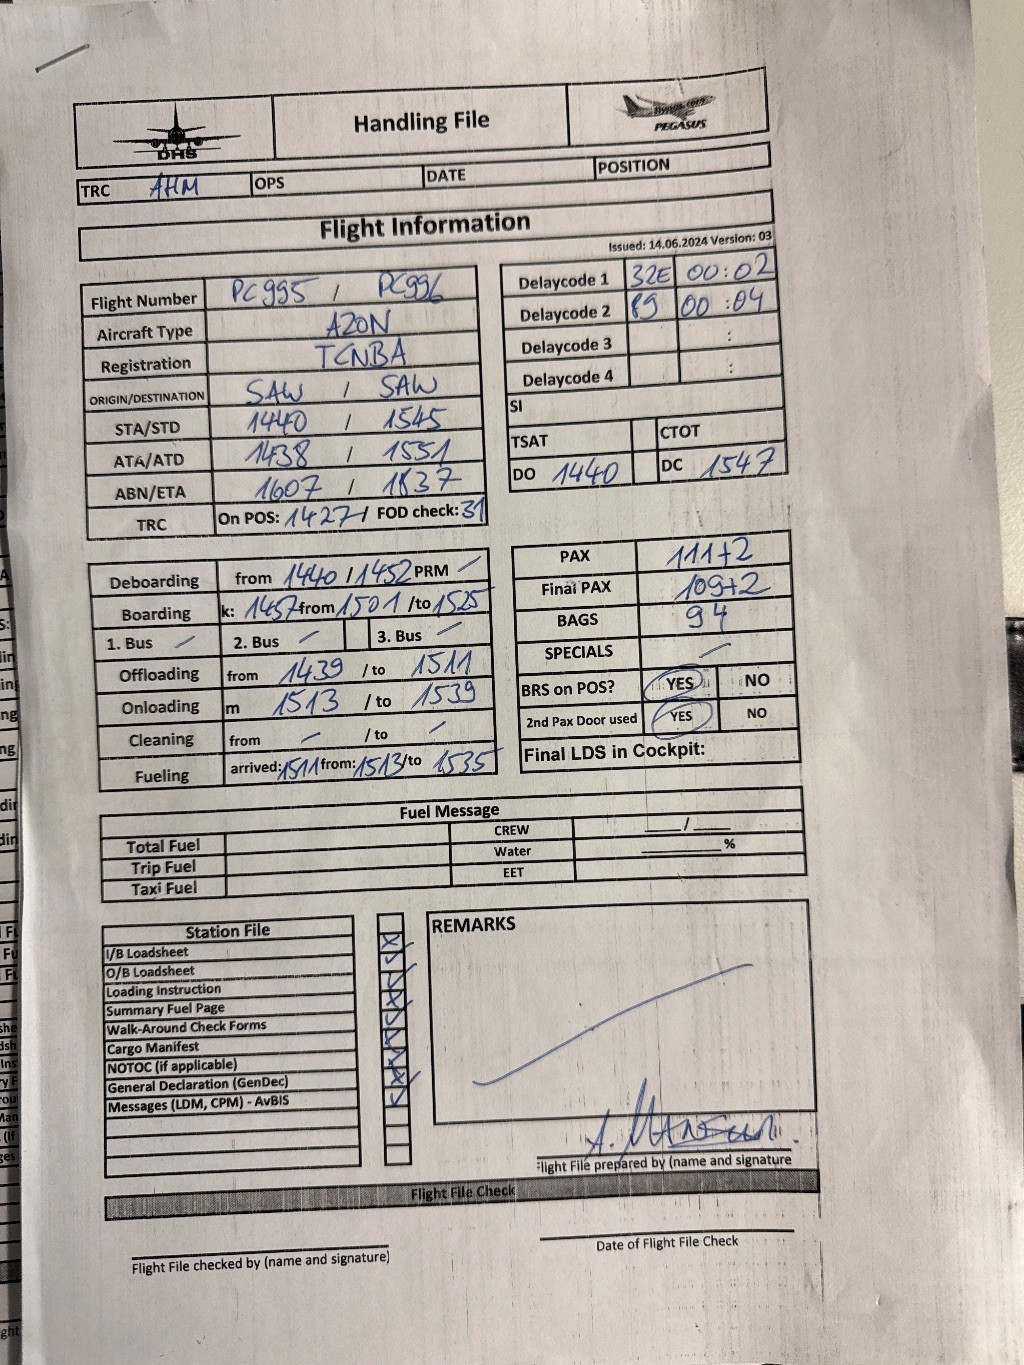 DHS
Handling File
flypgs.com
PEGASUS
TRC AHM OPS DATE POSITION
Flight Information
Issued: 14.06.2024 Version: 03
Flight Number PC995 / PC996
Aircraft Type A20N
Registration TCNBA
ORIGIN/DESTINATION SAW / SAW
STA/STD 1440 / 1545
ATA/ATD 1438 / 1551
ABN/ETA 1607 / 1837
TRC On POS: 1427 / FOD check: 31
Delaycode 1 32E 00:02
Delaycode 2 89 00:04
Delaycode 3 :
Delaycode 4 :
SI
TSAT CTOT
DO 1440 DC 1547
Deboarding from 1440 / 1452 PRM /
Boarding k: 1457 from 1501 /to 1525
1. Bus / 2. Bus / 3. Bus /
Offloading from 1439 / to 1511
Onloading m 1513 / to 1539
Cleaning from / / to /
Fueling arrived: 1511 from: 1513 /to 1535
PAX 111+2
Final PAX 109+2
BAGS 94
SPECIALS /
BRS on POS? YES NO
2nd Pax Door used YES NO
Final LDS in Cockpit:
Fuel Message
Total Fuel CREW ___/___
Trip Fuel Water ________%
Taxi Fuel EET
Station File
I/B Loadsheet
O/B Loadsheet
Loading Instruction
Summary Fuel Page
Walk-Around Check Forms
Cargo Manifest
NOTOC (if applicable)
General Declaration (GenDec)
Messages (LDM, CPM) - AvBIS
REMARKS
A. Mansour
light File prepared by (name and signature
Flight File Check
Flight File checked by (name and signature)
Date of Flight File Check